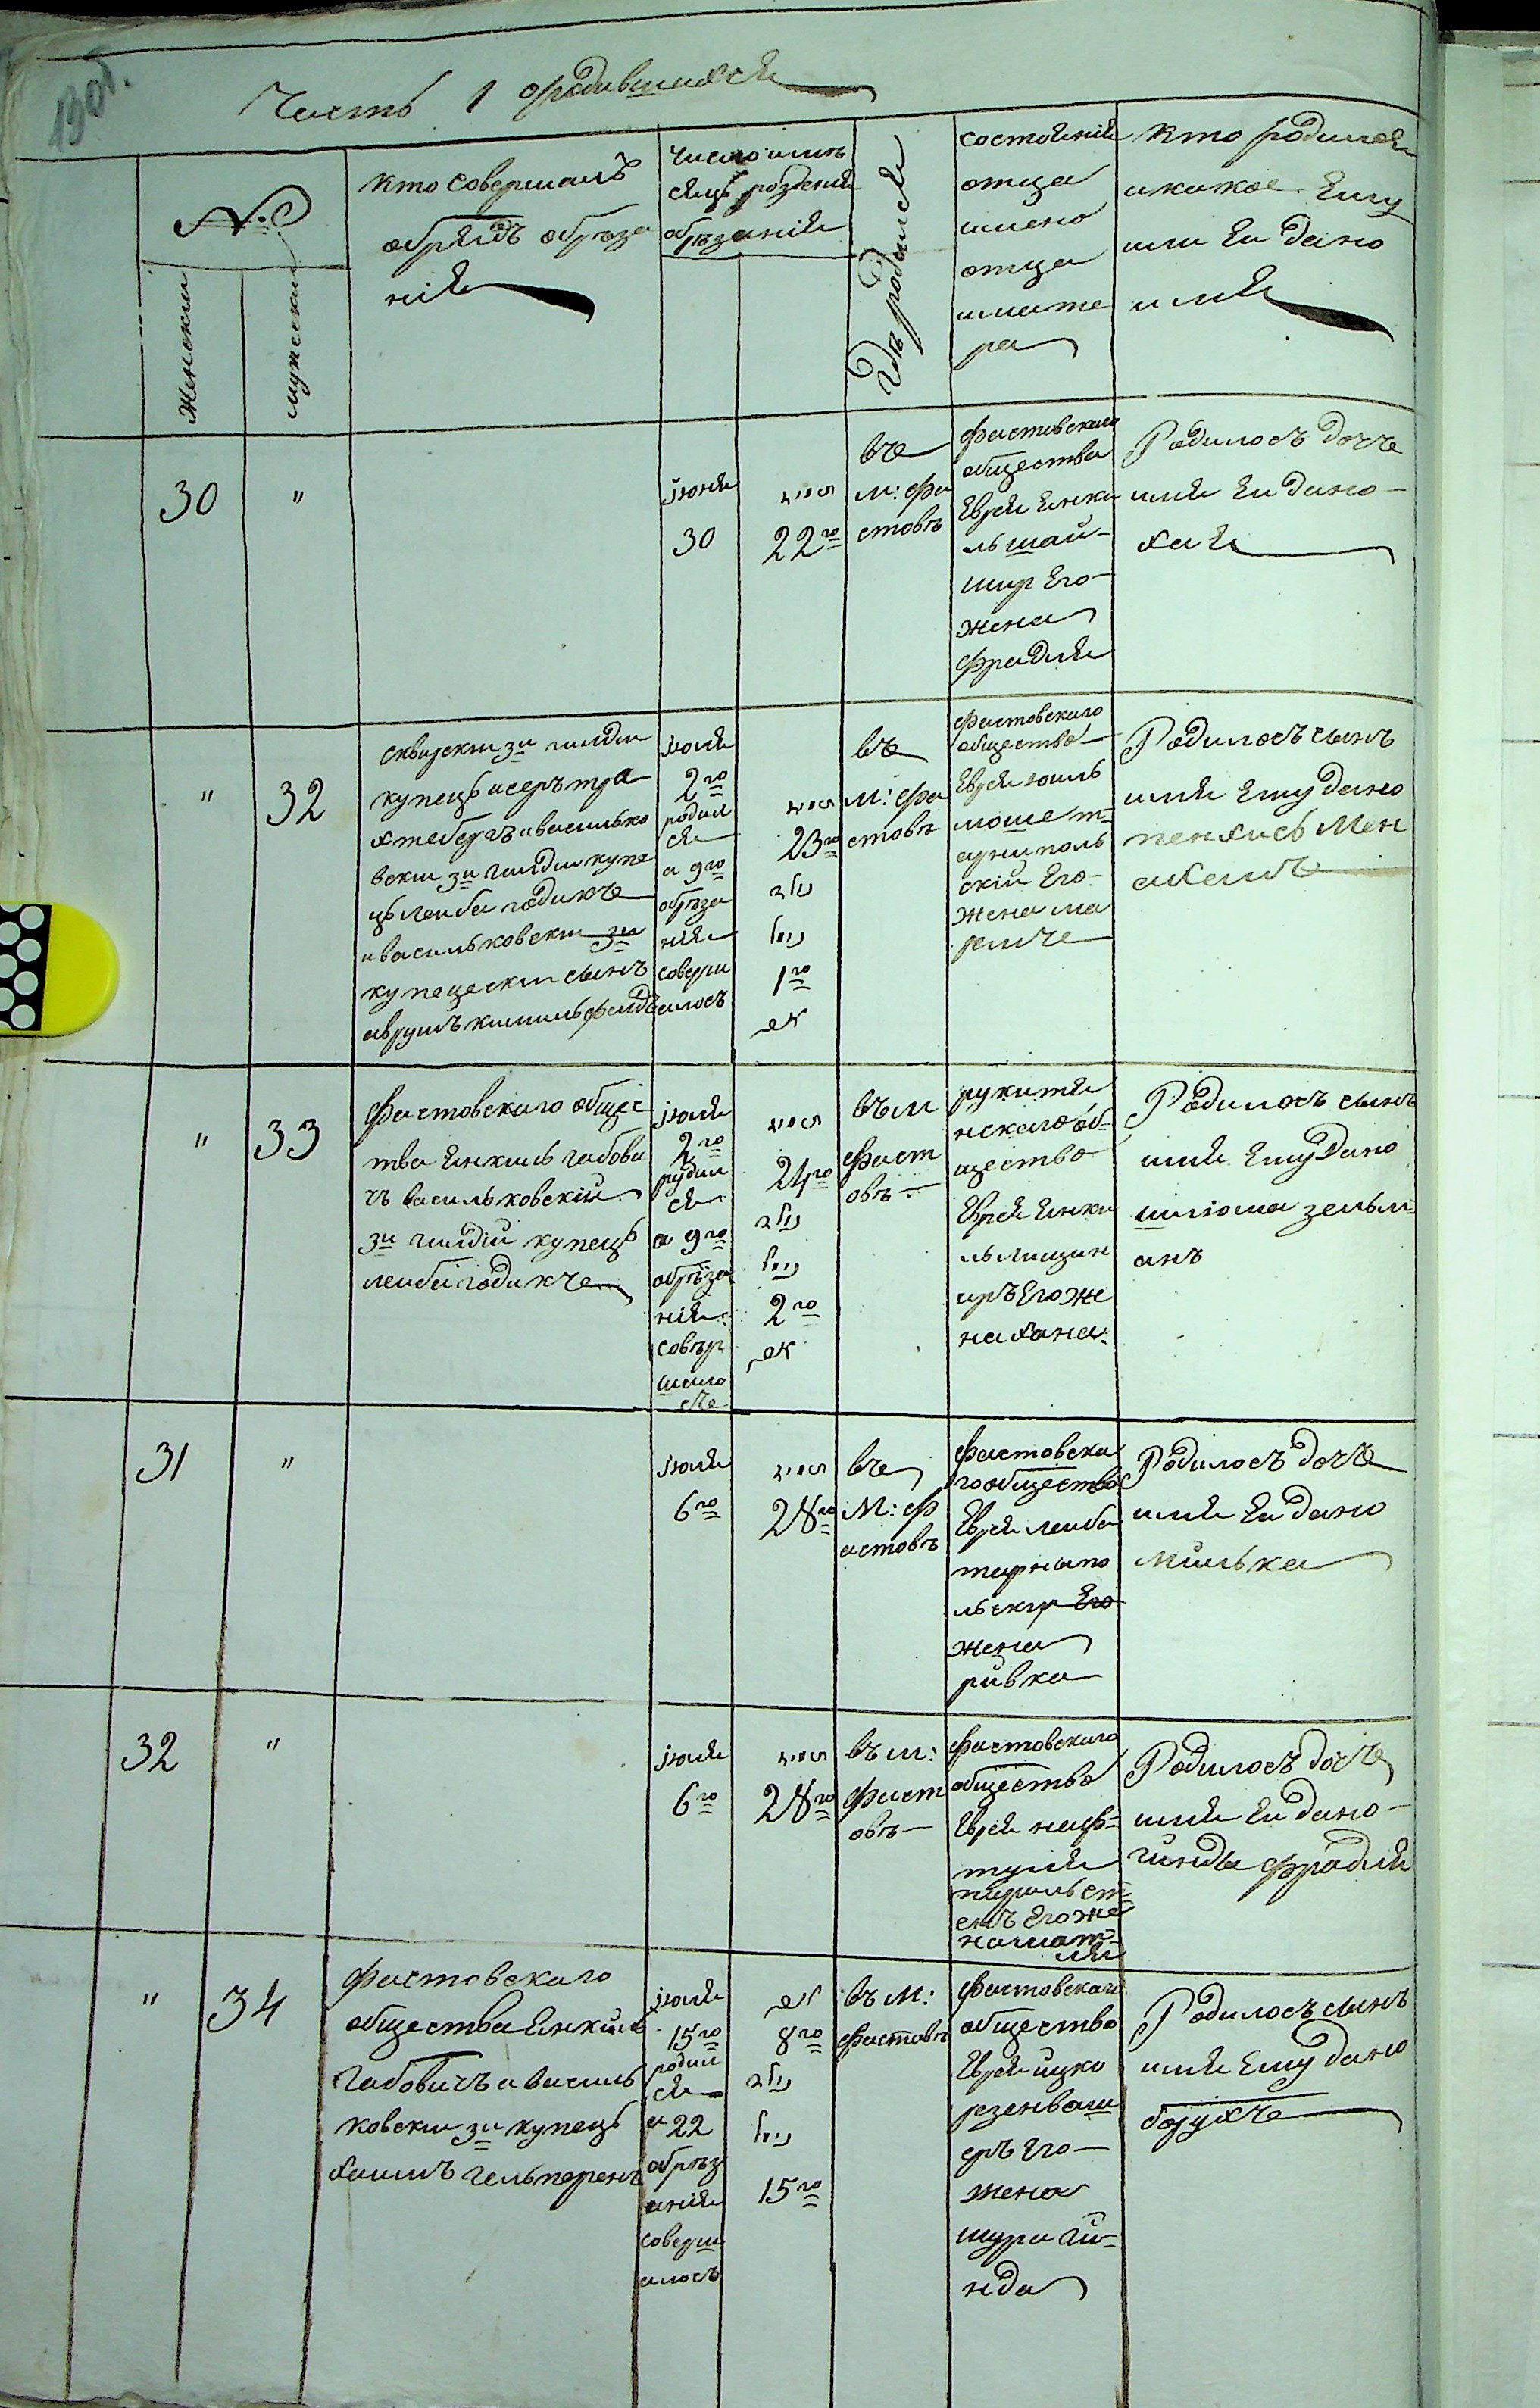 190 д.
Часть 1 о родившихся
№
Женскии
мужескии
кто совершалъ
обрядъ обреза
нія
число и мѣ
сяцъ рожденія
обрѣзанія
Гдѣ родился
состояніе
отца
имено
отца
и мате
ра
кто родился
и какое ему
или еи дано
имя
30
"
іюня
30
סיון
22го
въ
м: Фа
стовѣ
Фастовскаго
общества
Еврея Янке
ль шай-
мир Его
жена
Фрадля
Родилось дочъ
имя Еи дано
хая
"
32
сквирскии 3и гилдіи
купецъ исеръ тра
хтебергъ и василько
вскии 3и гилдіи купе
цъ Леиба годикъ
и васильковскии 3и
купецескии сынъ
аврумъ кишильфендъ
іюля
2го
родил
ся
а 9го
обрѣза
нія
соверш
илось
סיון
23го
נולד
נימל
1го
תמ
въ
м: Фа
стовѣ
Фастовскаго
общество
Еврея іоиль
моше т-
арнополь
скіи Его
жена ма
римъ
Родилось сынъ
имя Ему дано
пенхись Мен
ахемъ
"
33
Фастовскаго общес
тва Янкиль габови
чъ васильковскій
3и гилдіи купецъ
леиби годикъ
іюля
2го
родил
ся
а 9го
обрѣза
нія
совѣр
шило
съ
סיון
24го
נולד
נימל
2го
תמ
въ м
Фаст
овѣ
ракитя
нскаго об-
щество
Еврея Янке
ль лищин
иръ Его же
на хана
Родилось сынъ
имя Ему дано
шліома зельм
анъ
31
"
іюля
6го
סיון
28го
въ
М: Ф
астовѣ
Фастовска
го общество
Еврея леиба
тарнапо
льскир Его
жена
ривка
Родилось дочъ
имя Еи дано
милька
32
"
іюля
6го
סיון
28го
въ м:
Фаст
овѣ
Фастовскаго
общество
Еврея наф-
туля
Его же
Родилось дочъ
имя Еи дано
гинда фрадля
"
34
Фастовскаго
общества Янкиль
Габовичъ и василь
ковскии 3и купецъ
хаимъ гельперенъ
іюля
15го
родил
ся
а 22
обрѣз
анія
соверш
илось
תמ
8го
נולד
נימל
15го
въ М:
Фастовѣ
Фастовскаго
общество
Еврея ицко
розенваш
еръ Его
жена
шура ги-
нда
Родилось сынъ
имя Ему дано
борухъ